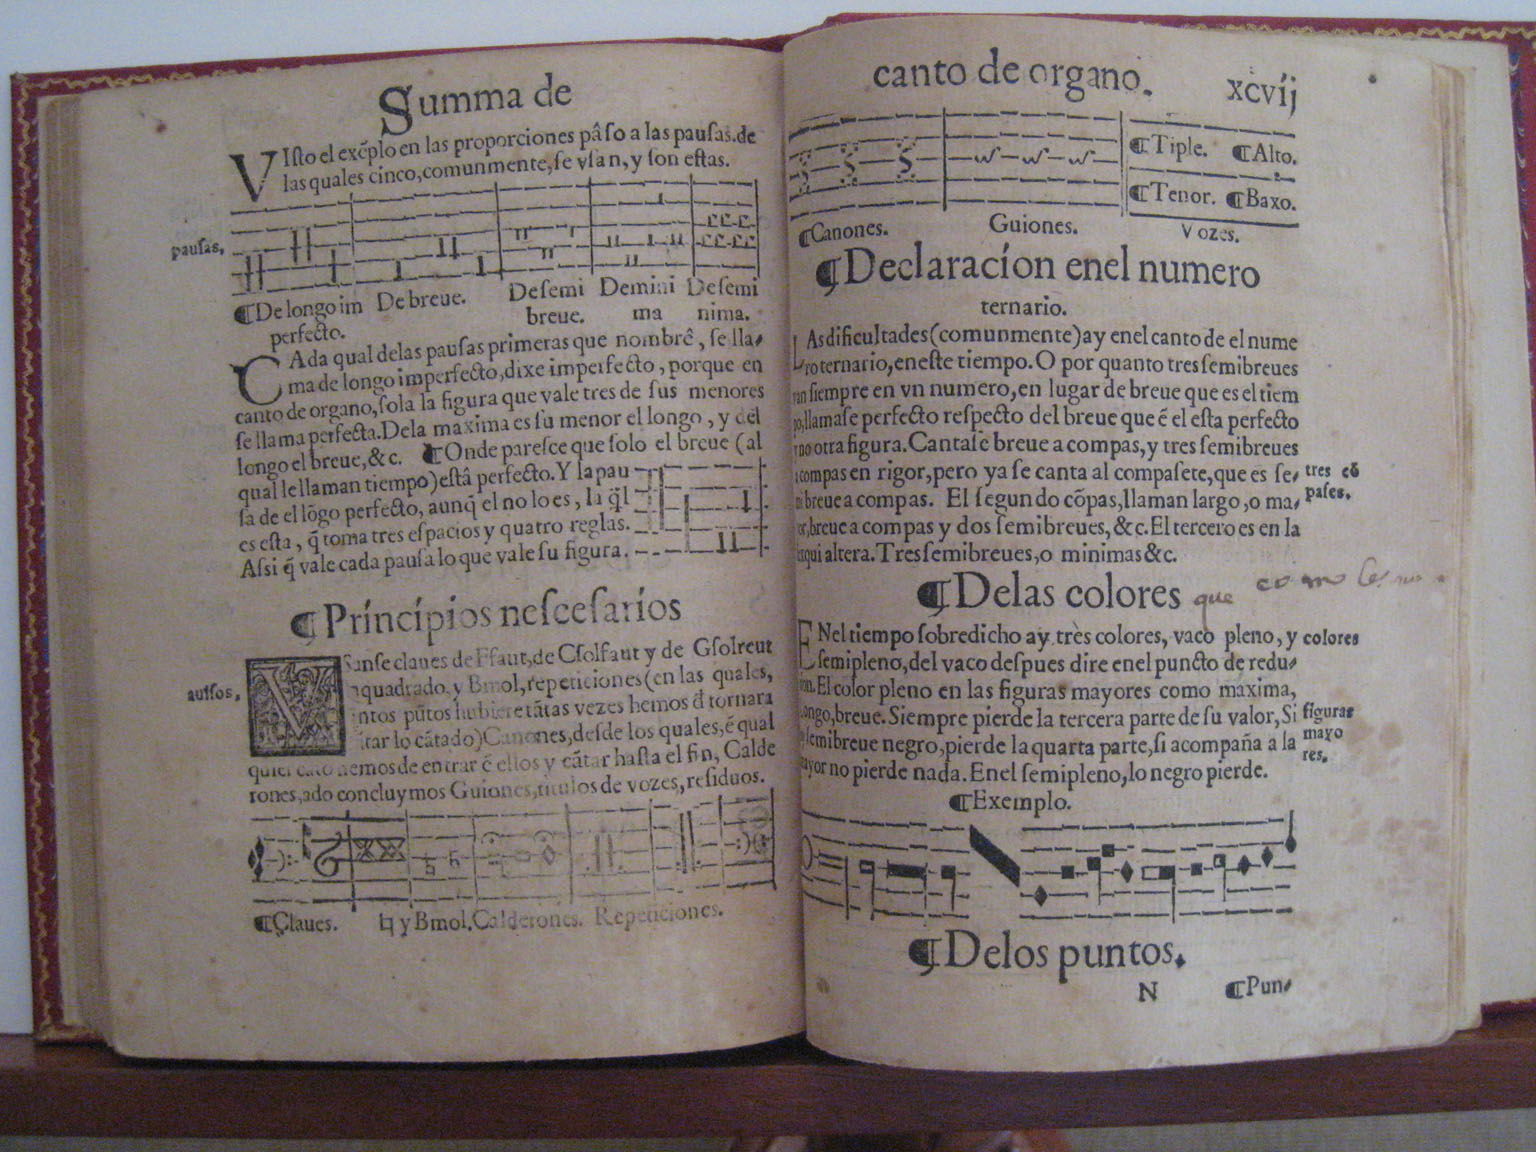 Summa de
VIsto el exẽplo en las proporciones pâso a las pausas.de
las quales cinco, comunmente, se vsan, y son estas.
pausas.
¶De longo im De breue. De semi De mini De semi
perfecto. breue. ma nima.
CAda qual delas pausas primeras que nombrê, se lla-
ma de longo imperfecto, dixe imperfecto, porque en
canto de organo, sola la figura que vale tres de sus menores
se llama perfecta. Dela maxima es su menor el longo, y del
longo el breue, &c. ¶Onde paresce que solo el breue (al
qual le llaman tiempo) estâ perfecto. Y la pau
sa de el lõgo perfecto, aunq̃ el no lo es, la q̃l
es esta, q̃ toma tres espacios y quatro reglas.
Assi q̃ vale cada pausa lo que vale su figura.
¶Príncípios nescesaríos
auisos.
VSanse claues de Ffaut, de Csolfaut y de Gsolreut
quadrado, y Bmol, repeticiones (en las quales,
pũtos hubiere tãtas vezes hemos đ tornar a
lo cãtado) Canones, desde los quales, ê qual
hemos de entrar ê ellos y cãtar hasta el fin, Calde
rones, ado concluymos Guiones, titulos de vozes, residuos.
¶Claues. ♮ y Bmol. Calderones. Repeticiones.
canto de organo. xcvíj
¶Tiple. ¶Alto.
¶Tenor. ¶Baxo.
¶Canones. Guiones. Vozes.
¶Declaracíon enel numero
ternario.
LAs dificultades (comunmente) ay enel canto de el nume
ro ternario, en este tiempo. O por quanto tres semibreues
van siempre en vn numero, en lugar de breue que es el tiem
po, llamase perfecto respecto del breue que ê el esta perfecto
y no otra figura. Cantase breue a compas, y tres semibreues
a compas en rigor, pero ya se canta al compasete, que es se-
mibreue a compas. El segundo cõpas, llaman largo, o ma-
or, breue a compas y dos semibreues, &c. El tercero es en la
sexqui altera. Tres semibreues, o minimas &c.
tres cõ
pases.
¶Delas colores que
ENel tiempo sobredicho ay tres colores, vaco pleno, y
semipleno, del vaco despues dire enel puncto de redu-
cion. El color pleno en las figuras mayores como maxima,
longo, breue. Siempre pierde la tercera parte de su valor, Si
semibreue negro, pierde la quarta parte, si acompaña a la
mayor no pierde nada. Enel semipleno, lo negro pierde.
colores
figuras
mayo
res.
¶Exemplo.
¶Delos puntos.
N ¶Pun-